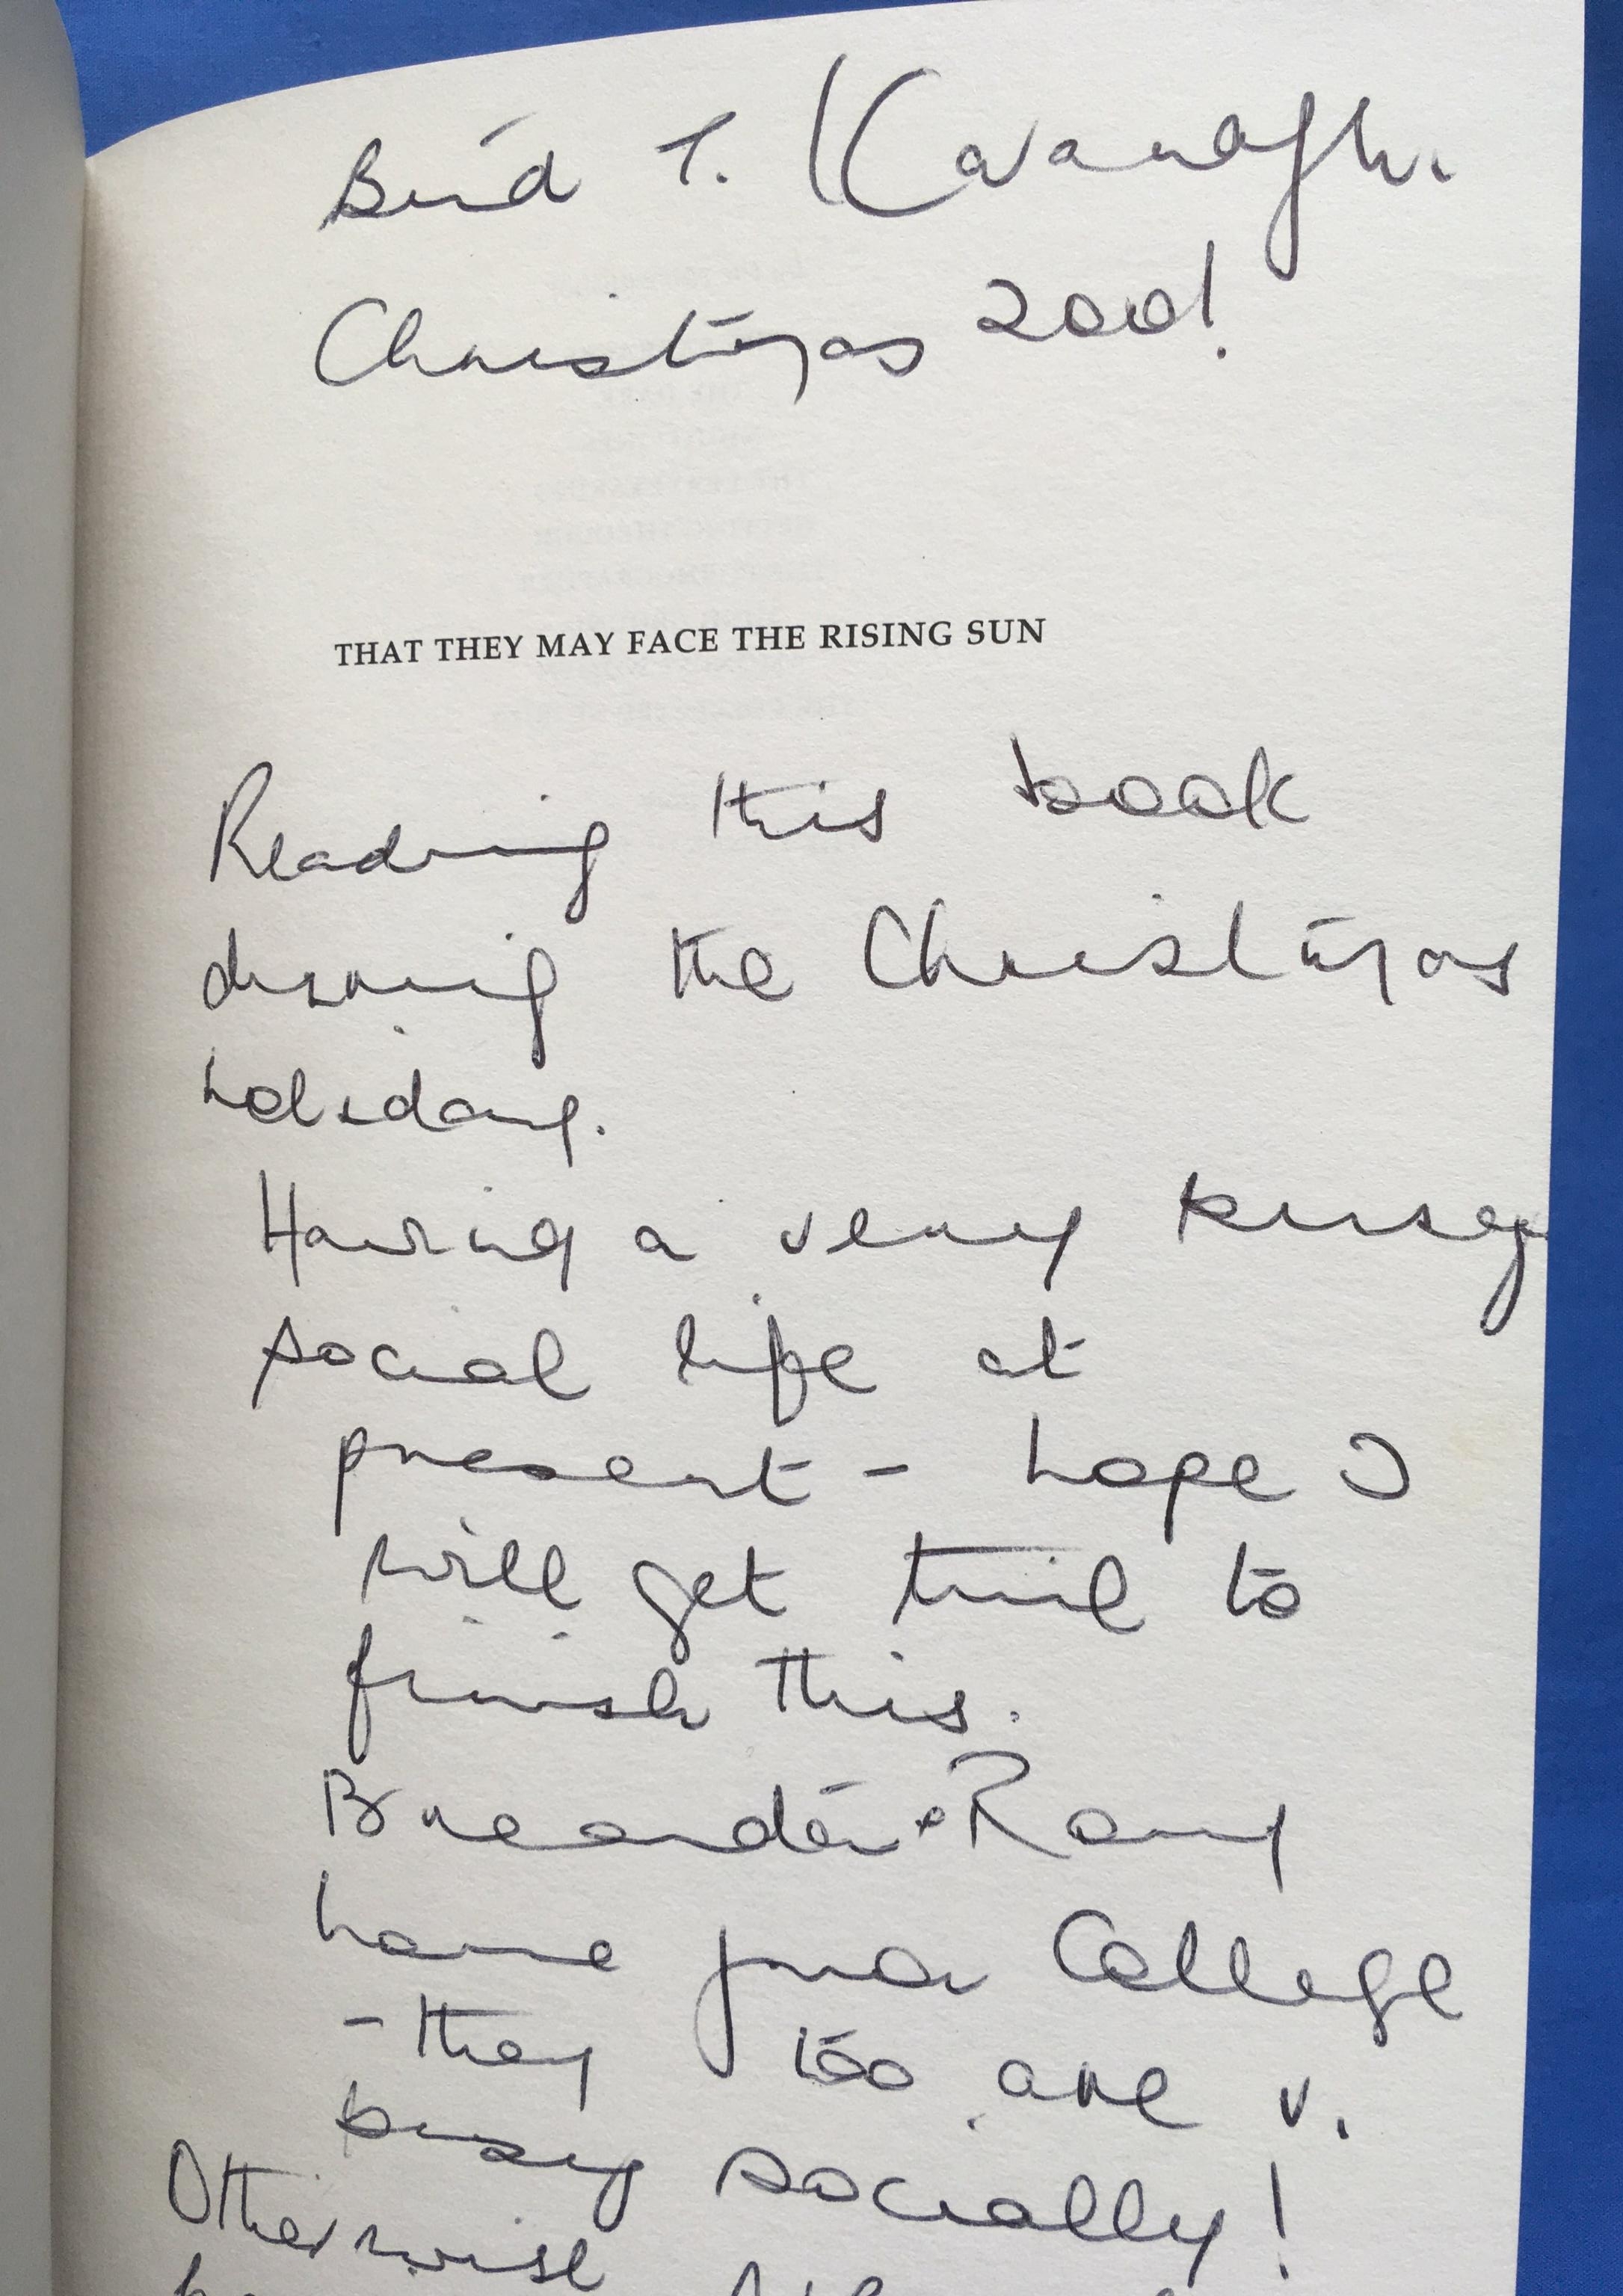 Bríd T. Kavanagh.
Christmas 2001.
THAT THEY MAY FACE THE RISING SUN
Reading this book
during the Christmas
holiday.
Having a very busy
social life at
present - hope I
will get time to
finish this.
Breandán + Rory
home from College
- they too are v.
busy socially!
Otherwise